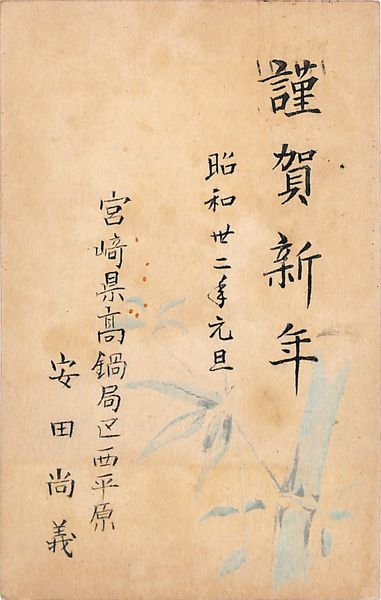 謹賀新年
昭和卅二年元旦
宮崎県高鍋局区西平原
安田尚義